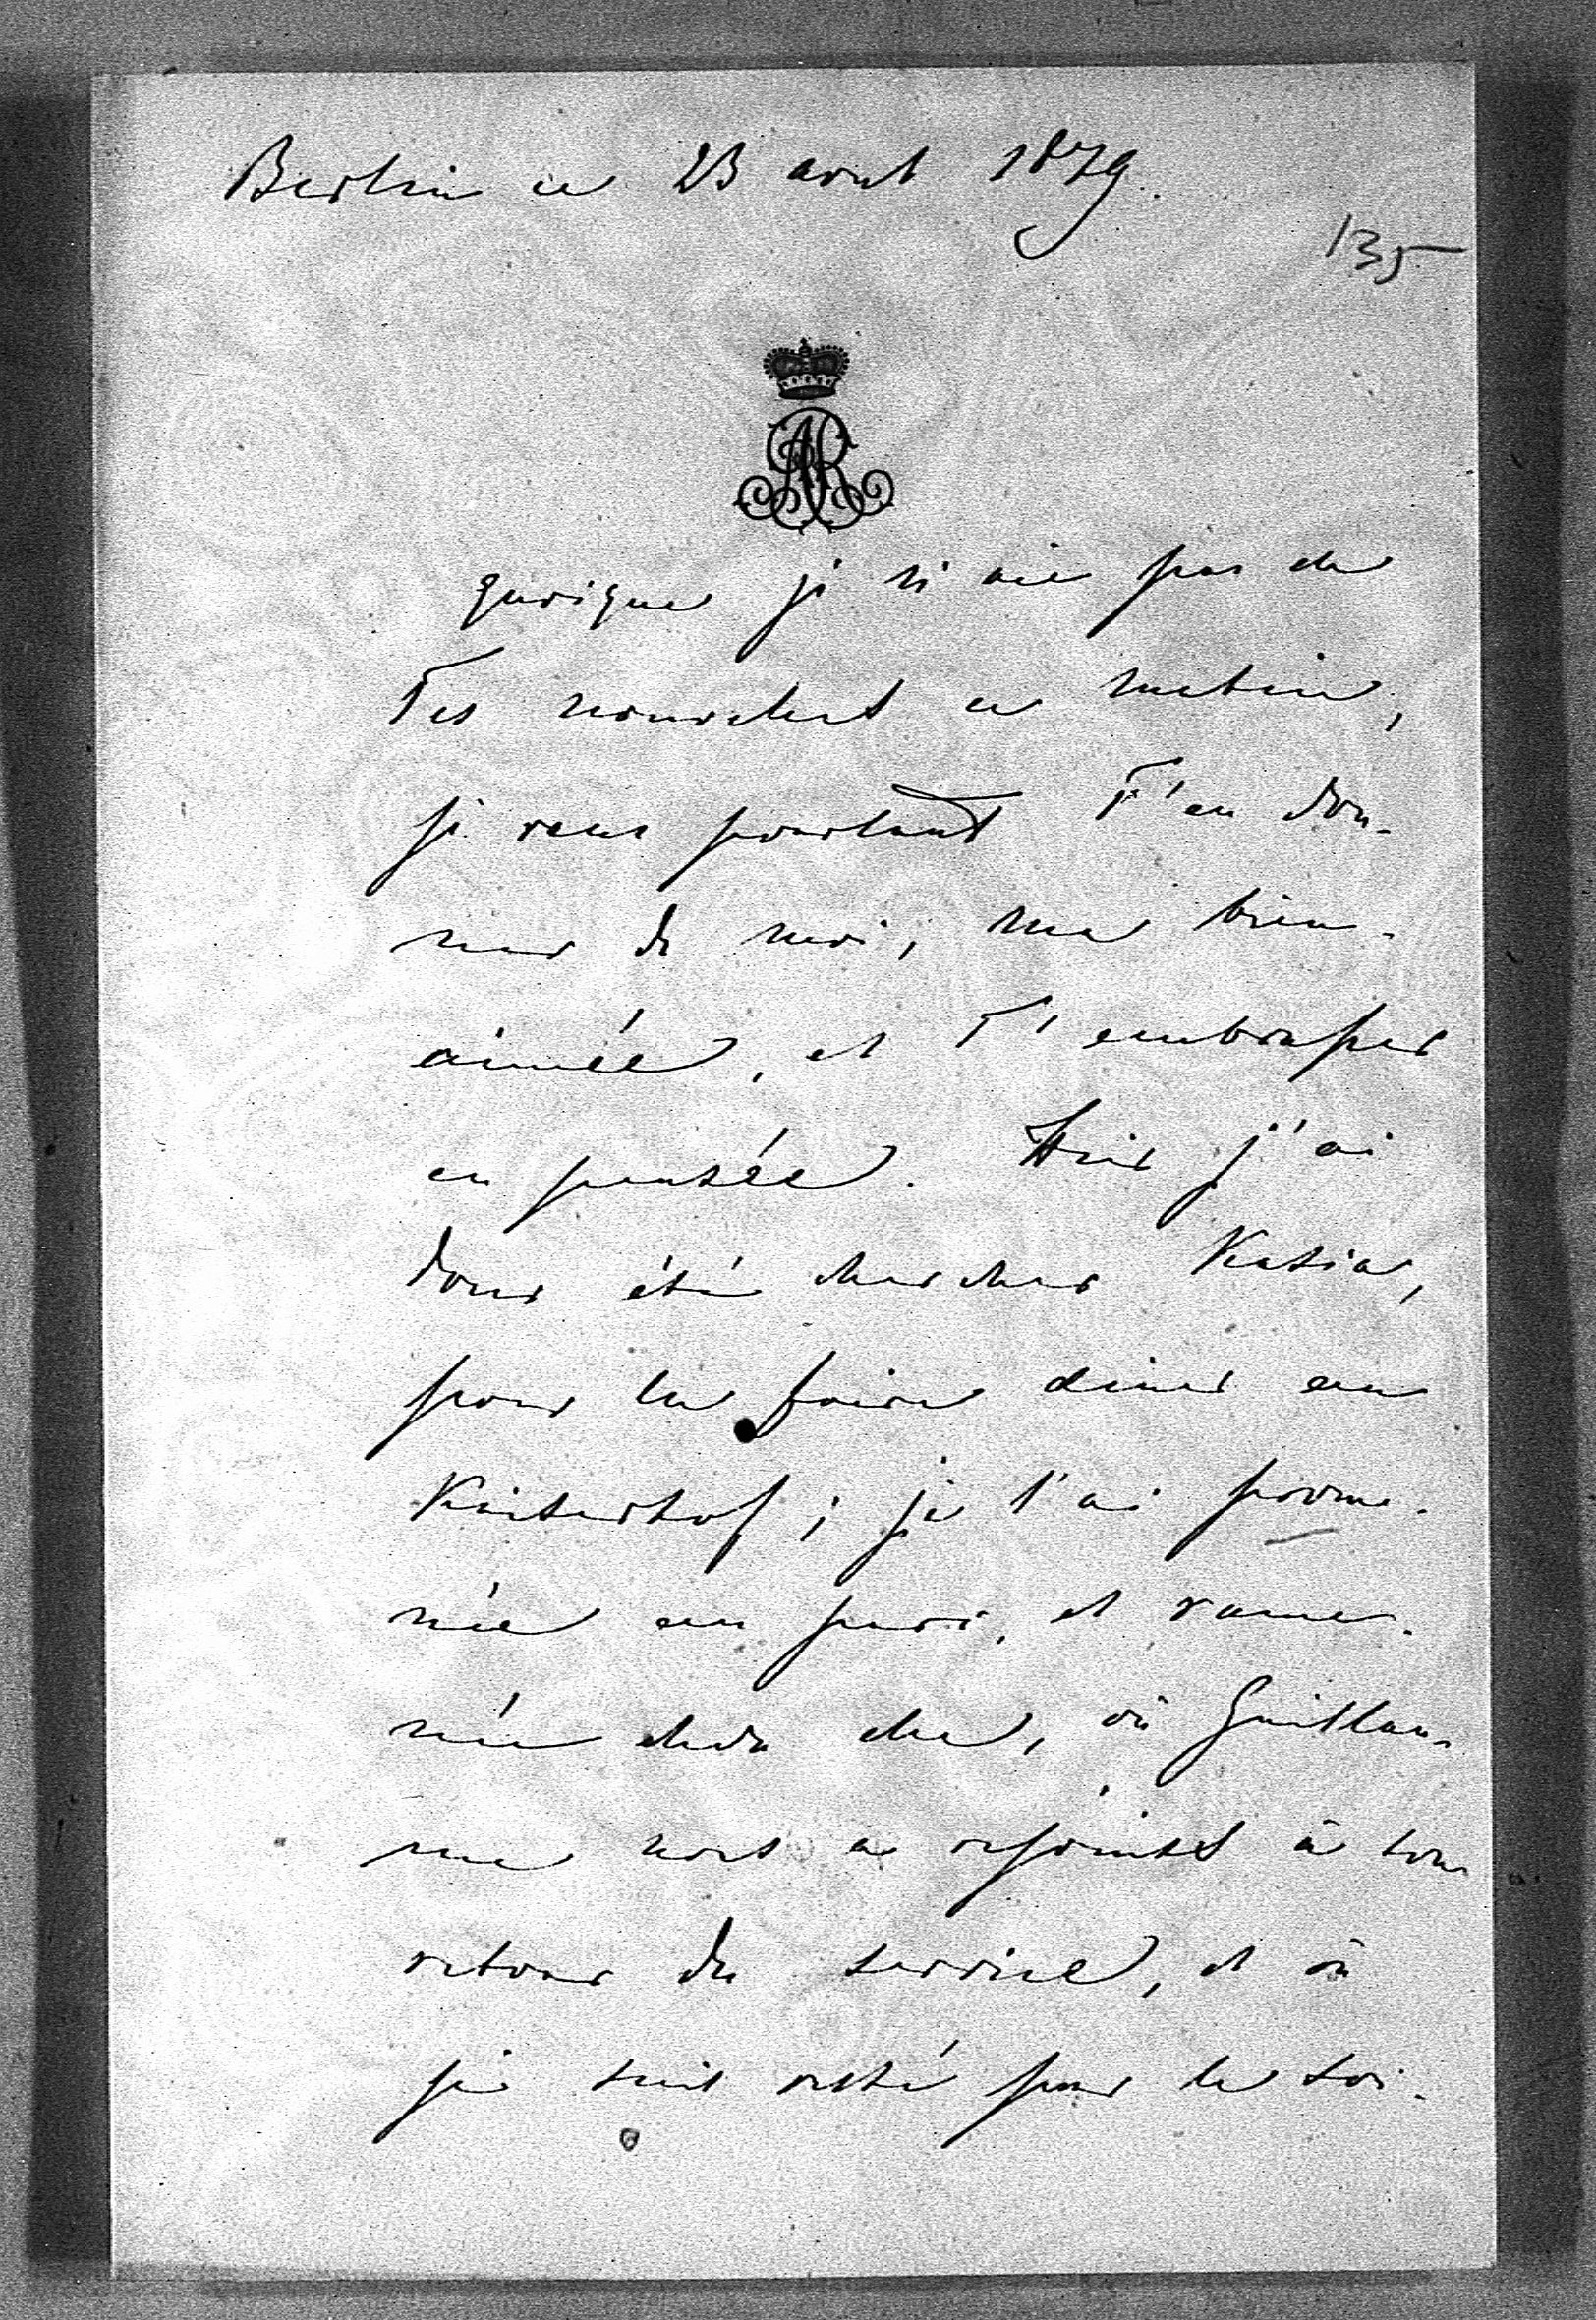 Berlin ce 23 aout 1879.
135
AR
quoique je n'aie pas de
Tes nouvelles ce matin,
je veux pourtant T'en don-
ner de moi, ma bien-
aimée, et T'embrasser
en pensée. Hier j'ai
donc été chercher Katia,
pour la faire diner au
Kaiserhof; je l'ai prome-
née au parc, et rame-
née chez elle, où Guillau-
me nous a rejoint à son
retour du service, et où
je suis resté pour la soi-